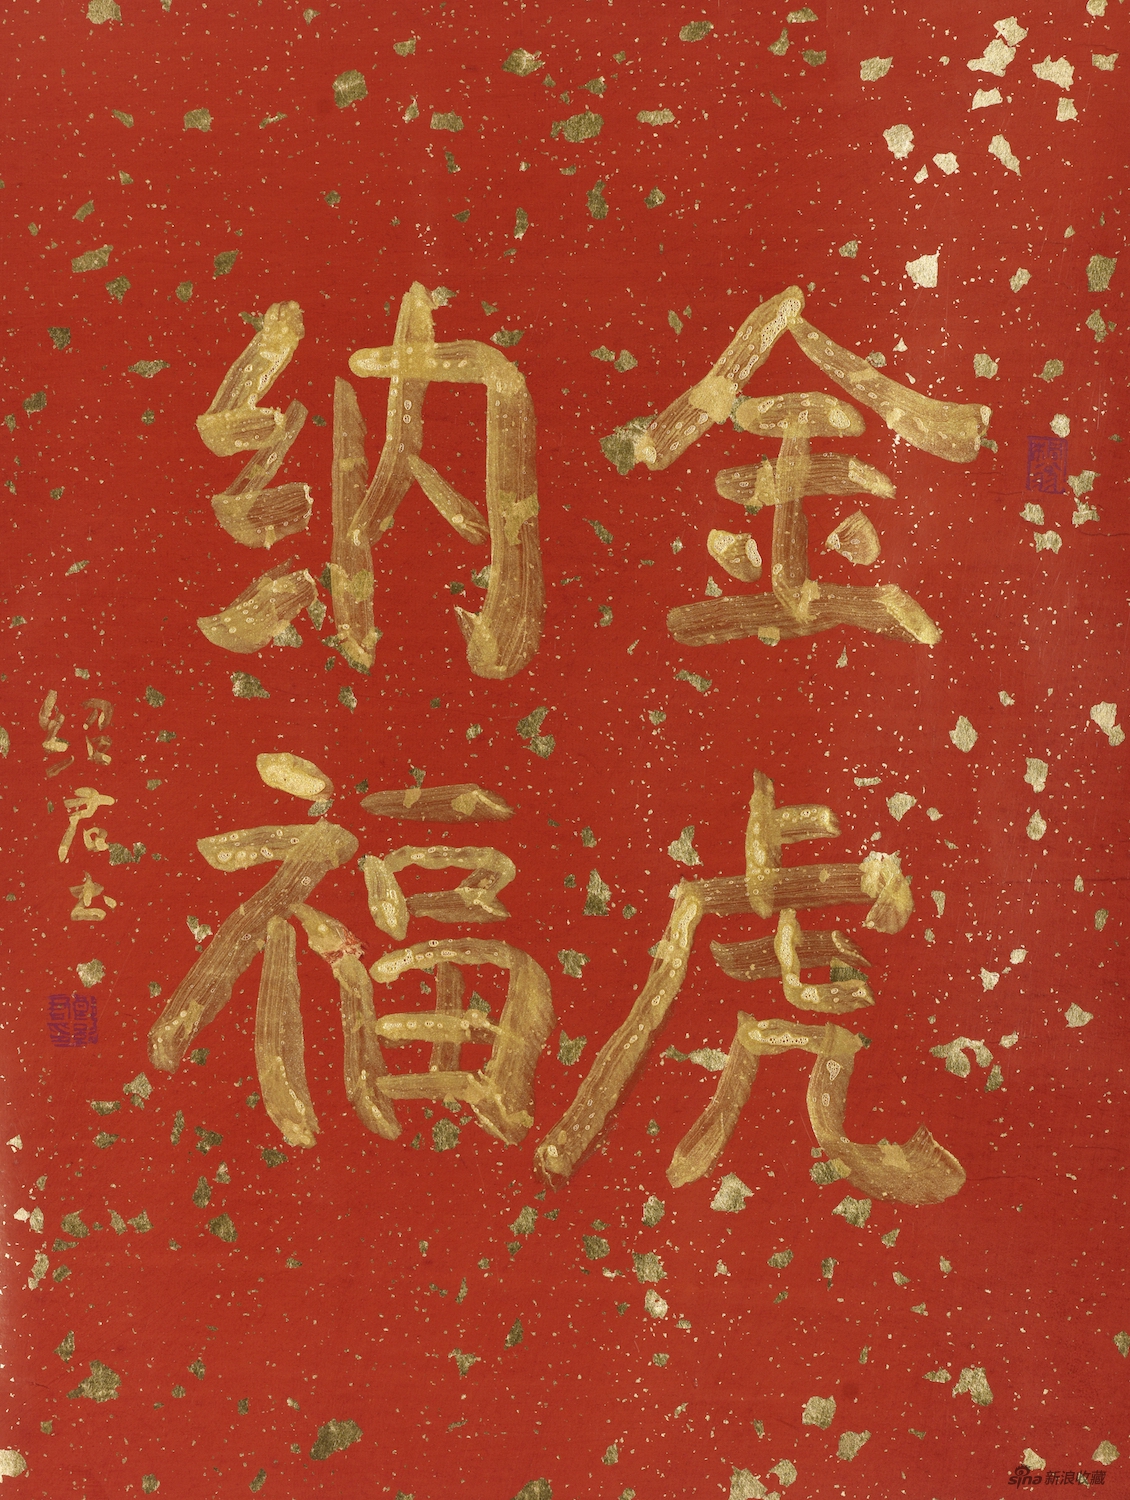 金虎
纳福
绍君书
sina 新浪收藏